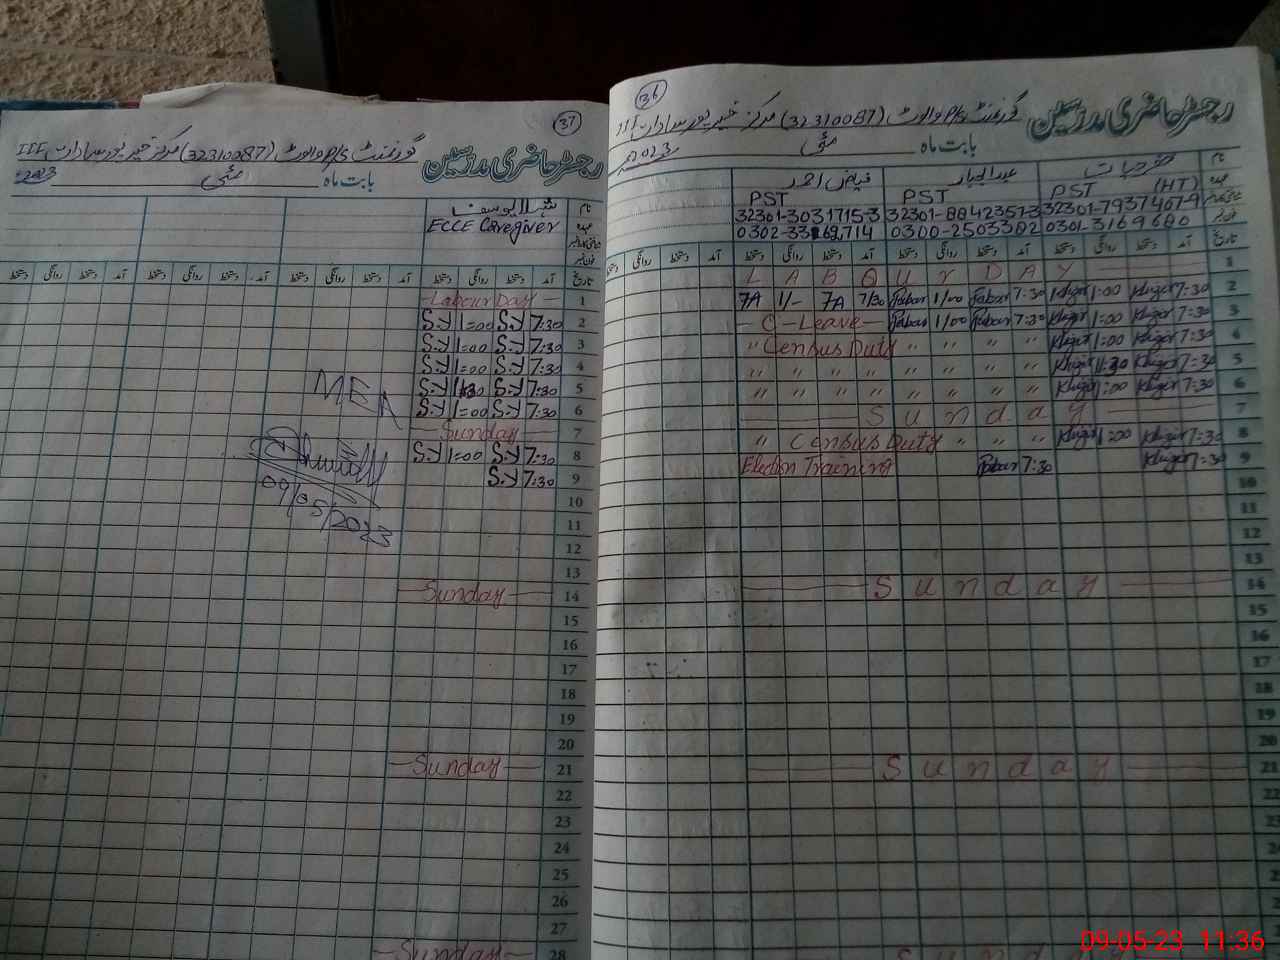 37
رجسٹر حاضری مدرسین گورنمنٹ P/S والوٹ (32310087) مرکز خیرپور سادات III
بابت ماہ مئی 2023
نام
ECCE Caregiver
تاریخ آمد دستخط روانگی دستخط آمد دستخط روانگی دستخط آمد دستخط روانگی دستخط آمد دستخط روانگی دستخط
1 Labour Day
2 7:30 S.Y 1=00 S.Y
3 7:30 S.Y 1=00 S.Y
4 7:30 S.Y 1=00 S.Y
5 7:30 S.Y S.Y
6 7:30 S.Y 1=00 S.Y
7 Sunday
8 7:30 S.Y 1=00 S.Y
9 7:30 S.Y
10
11
12
13
14 Sunday
15
16
17
18
19
20
21 Sunday
22
23
24
25
26
27
28 Sunday
MEA
09/05/2023
36
رجسٹر حاضری مدرسین گورنمنٹ P/S والوٹ (32310087) مرکز خیرپور سادات III
بابت ماہ مئی 2023
نام خضر حیات عبدالجبار فیاض احمد
PST (HT) PST PST
32301-7937467-9 32301-8842357-3 32301-3031715-3
0301-3169680 0300-2503302 0302-3362714
تاریخ آمد دستخط روانگی دستخط آمد دستخط روانگی دستخط آمد دستخط روانگی دستخط آمد دستخط روانگی دستخط
1 LABOUR DAY
2 7:30 Khizar 1:00 Khizar 7:30 Jabar 1/00 Jabar 7/30 7A 1/- 7A
3 7:30 Khizar 1:00 Khizar 7:30 Jabar 1/00 Jabar C-Leave
4 7:30 Khizar 1:00 Khizar " " " Census Duty "
5 7:30 Khizar 11:30 Khizar " " " " " " " "
6 7:30 Khizar 1:00 Khizar " " " " " " " "
7 Sunday
8 7:30 Khizar 1:00 Khizar " " " Census Duty "
9 7:30 Khizar 7:30 Jabar Election Training
10
11
12
13
14 Sunday
15
16
17
18
19
20
21 Sunday
22
23
24
09-05-23 11:36